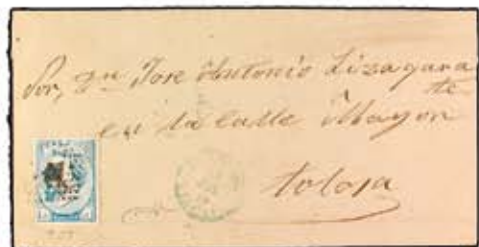 Sor, Dn Jose Antonio Lizagara
te
en la calle Mayor
tolosa